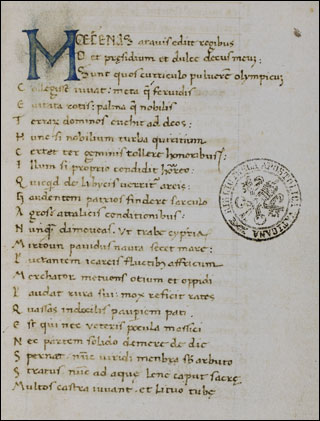 MŒCENAS atauis edite regibus
O et præsidium et dulce decus meum:
Sunt quos curriculo puluerem olympicum
Collegisse iuuat: meta que feruidis
Euitata rotis: palma que nobilis
Terrarum dominos euehit ad deos:
Hunc si mobilium turba quiritium
Certet ter geminis tollere honoribus:
Illum si proprio condidit horreo
Quicquid de libycis uerritur areis:
Gaudentem patrios findere sarculo
Agros attalicis conditionibus:
Nunquam dimoueas. Ut trabe cypria
Mirtoum pauidus nauta secet mare:
Luctantem icareis fluctibus affricum
Merchator metuens otium et oppidi
Laudat rura sui: mox reficit rates
Quassas indocilis pauperiem pati.
Est qui nec ueteris pocula massici
Nec partem solido demere de die
Spernat. nunc uiridi membra sub arbuto
Stratus nunc ad aquæ lene caput sacræ
Multos castra iuuant. et lituo tubæ